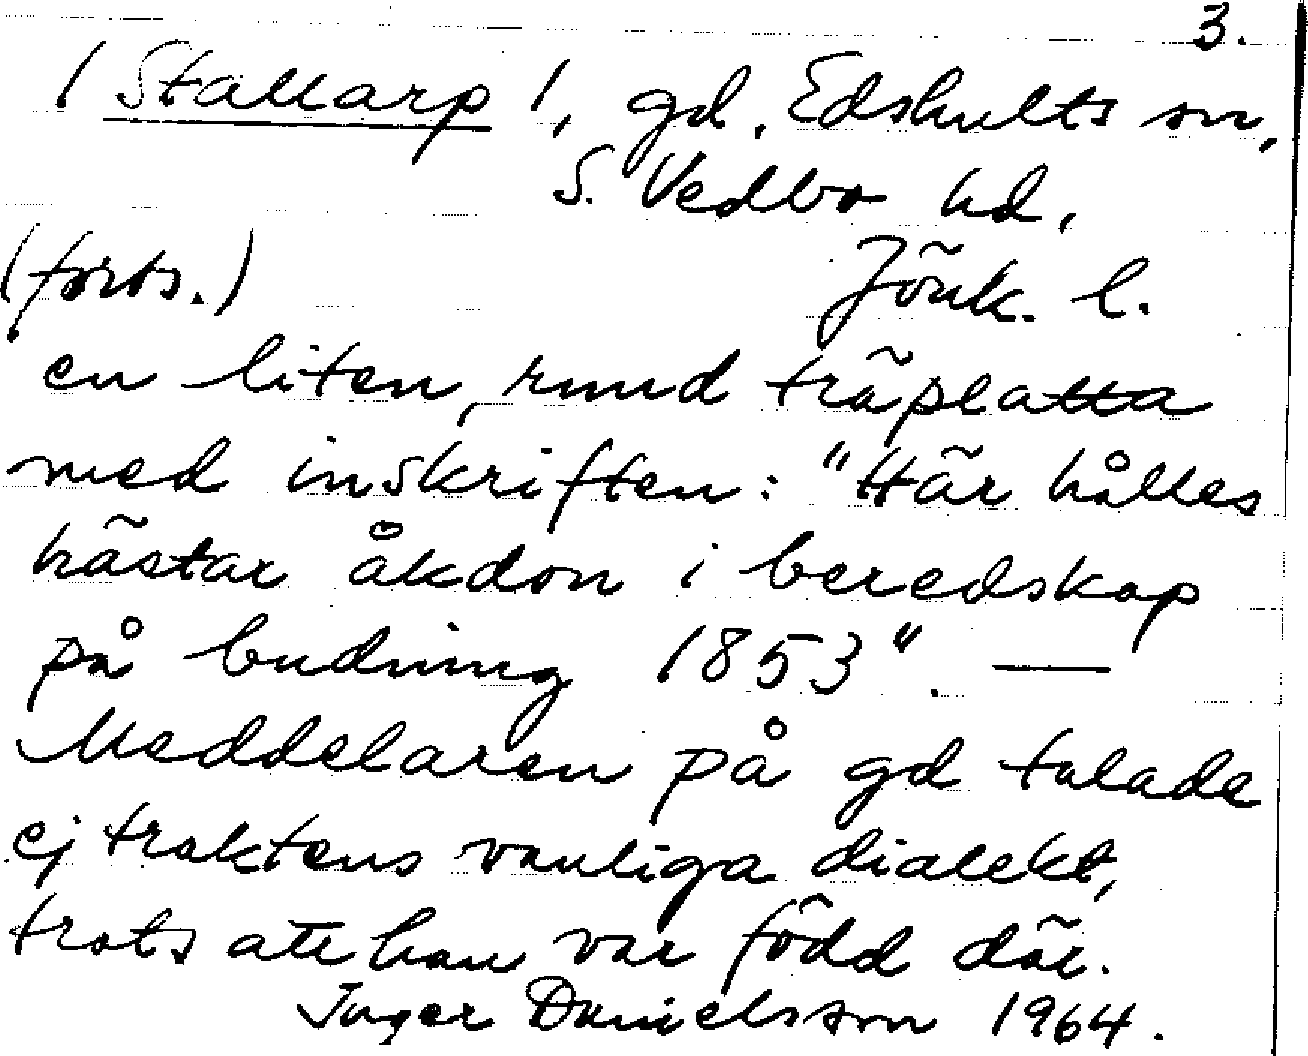 3.
/ Stallarp /, gd, Edshults sn,
S. Vedbo hd,
(forts.) Jönk. l.
en liten, rund träplatta
med inskriften: "Här hålles
hästar åkdon i beredskap
på budning 1853". —
Meddelaren på gd talade
ej traktens vanliga dialekt,
trots att han var född där.
Inger Danielsson 1964.